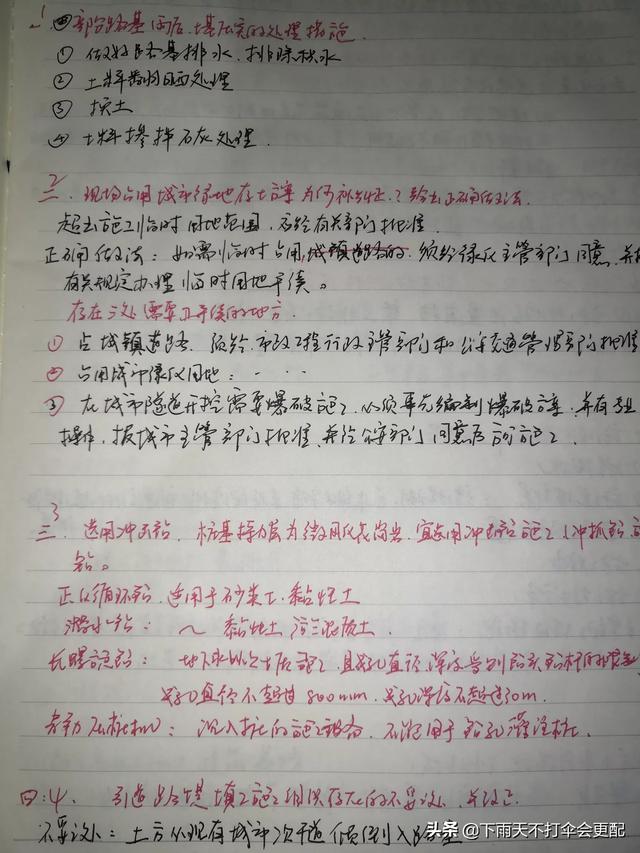 1 四 部分路基雨后, 填压实的处理措施.
① 做好路基排水, 排除积水
② 土料翻晒处理
③ 换土
④ 土料掺拌石灰处理.
2 二. 现场占用城市绿地存土方案为何补齐? 给出正确做法.
超出施工临时用地范围, 不经有关部门批准.
正确做法: 如需临时占用 须经绿化主管部门同意, 并按
有关规定办理临时用地手续。
存在三处需要办手续的地方.
① 占城镇道路. 须经市政工程行政主管部门和公安交通管理部门批准
② 占用城市绿化用地: - - - -
③ 在城市隧道开挖需要爆破施工, 必须事先编制爆破方案, 并有专业
操作, 报城市主管部门批准, 并经公安部门同意后方可施工.
3 三. 选用冲击钻, 桩基持力层为微风化花岗岩, 宜选用冲击钻施工
钻。
正反循环钻. 适用于砂类土. 黏性土
潜水钻: ~ 黏性土 淤泥质土.
长螺旋钻: 地下水以上土层施工, 且成孔直径, 深度受到
成孔直径不超过800mm, 成孔深度不超过30m.
静力压桩机: 沉入桩的施工设备, 不能用于钻孔灌注桩.
四: 4. 引道路堤填土施工组织存在的不妥之处, 并改正
不妥之处: 土方从现有城市次干道倾倒入路基
头条 @下雨天不打伞会更配